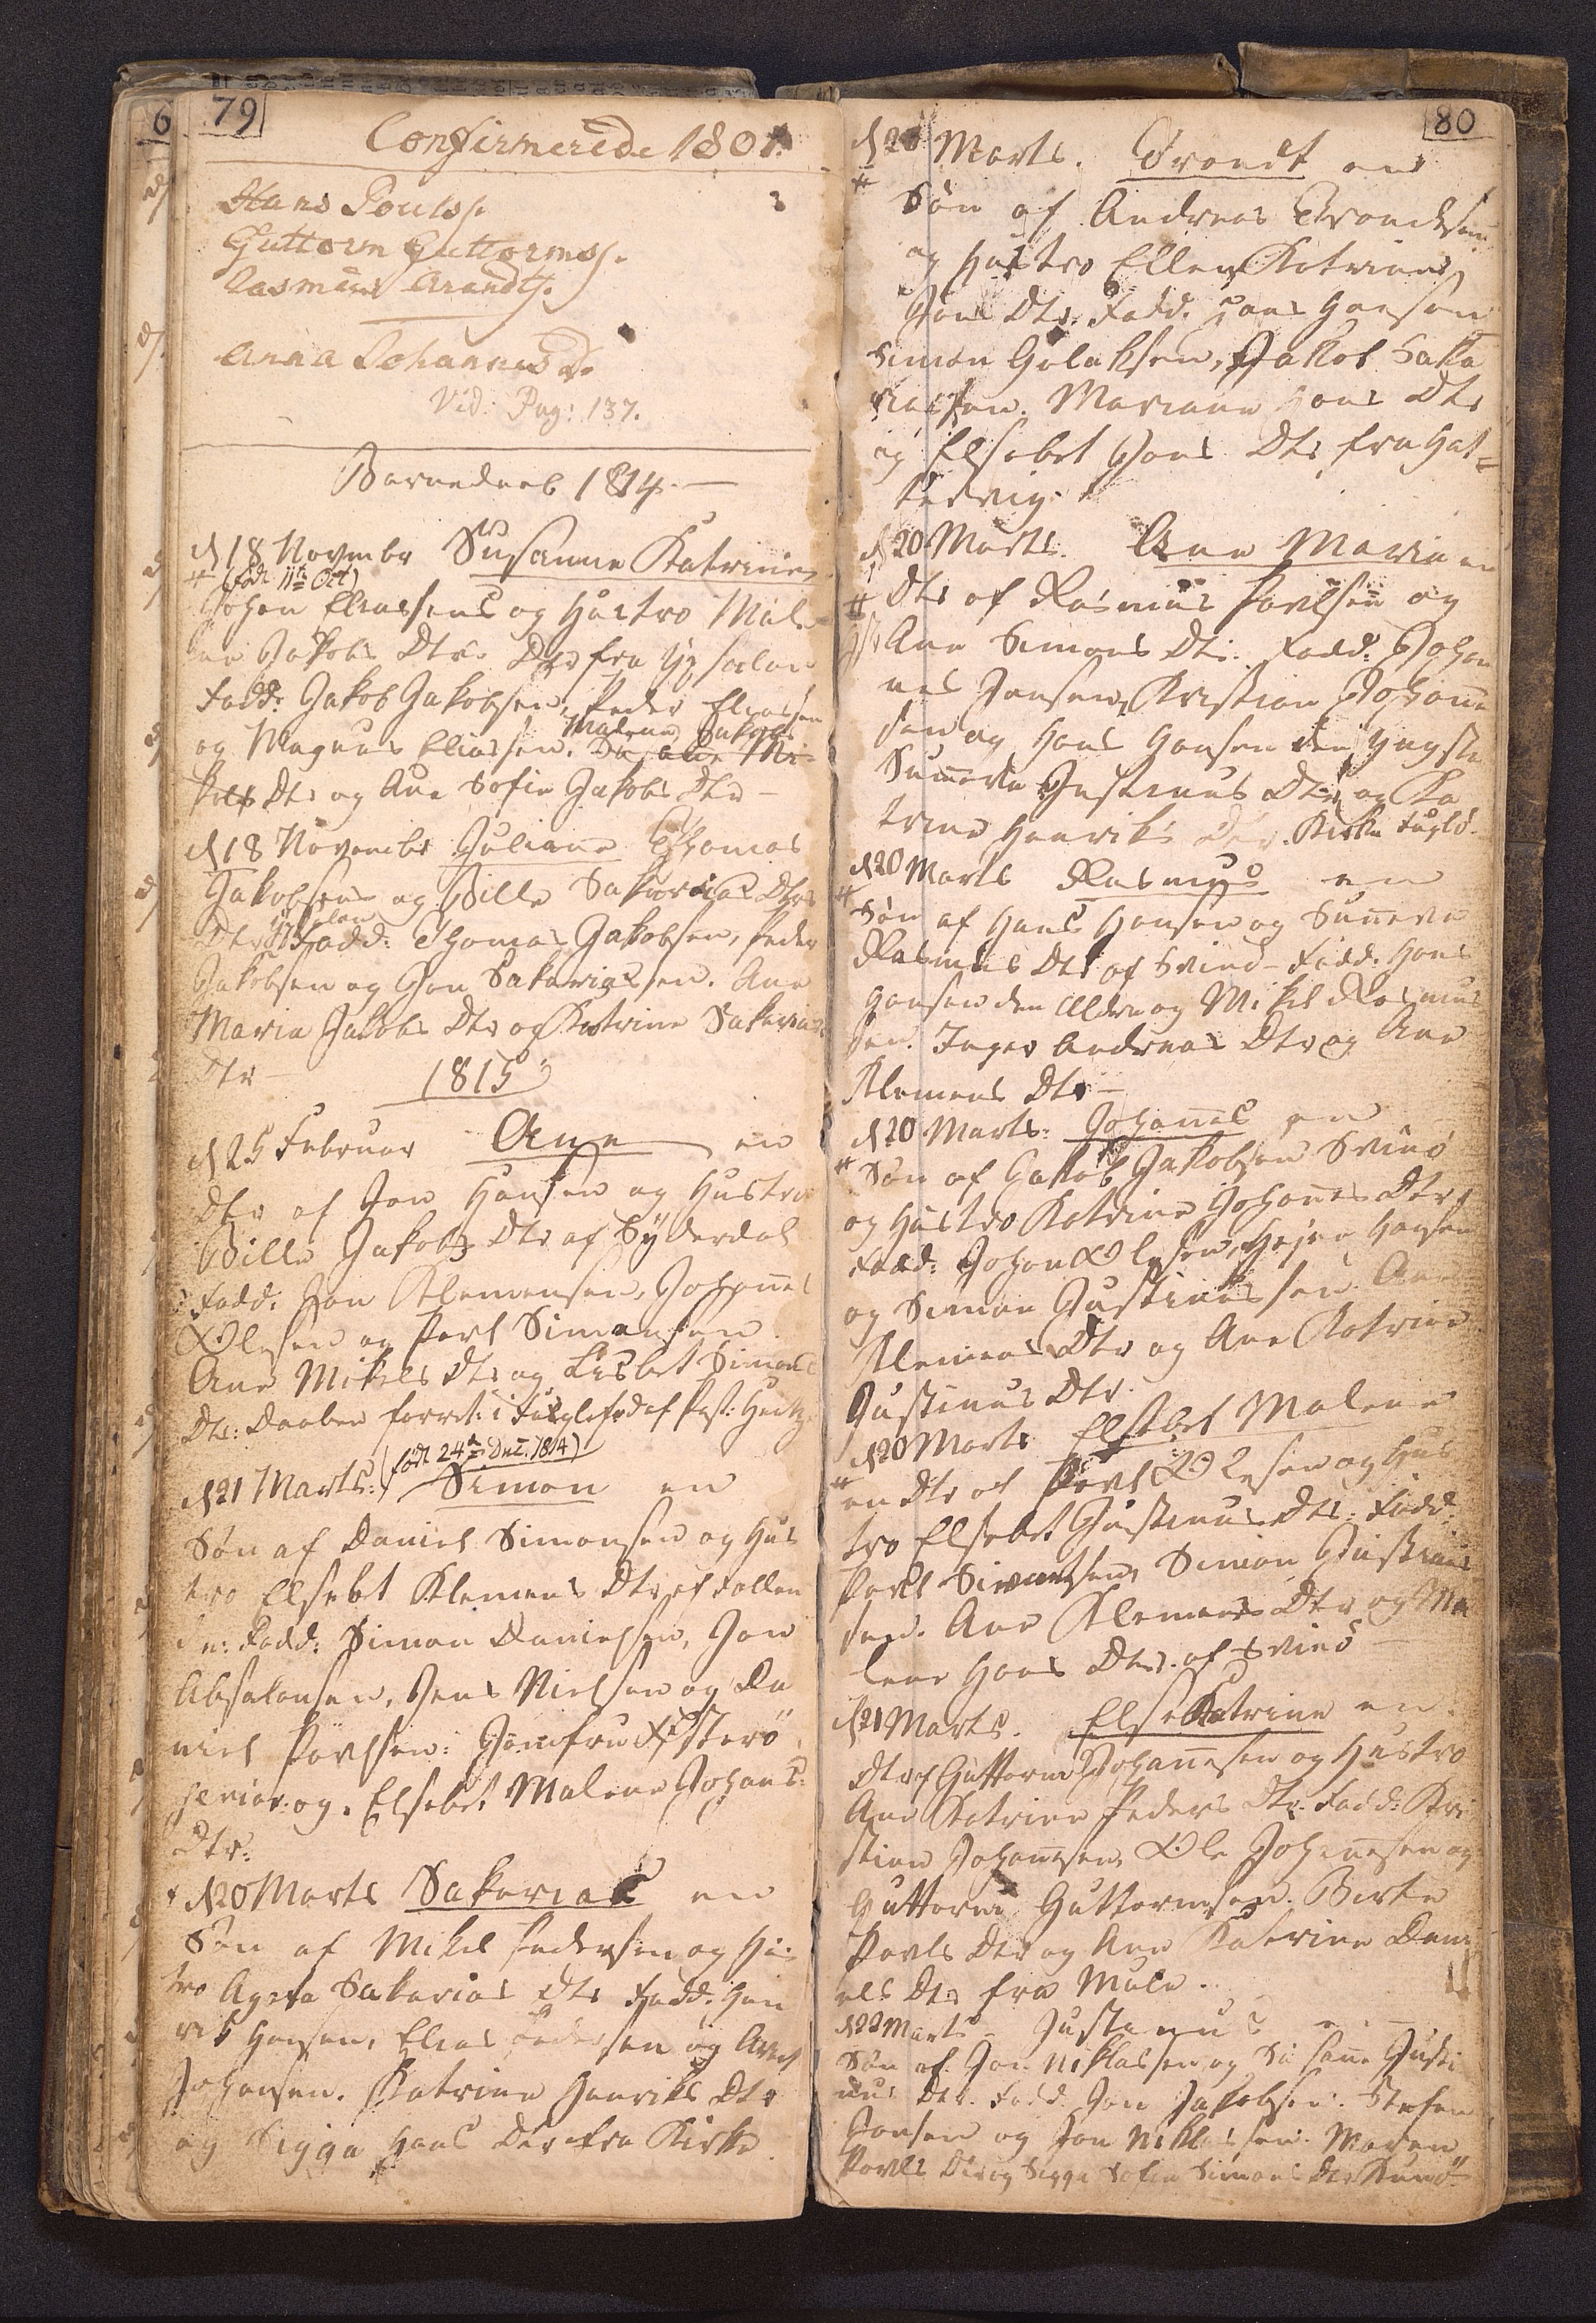 79
Confirmerede 1801.
Hans Pouls.
Guttorm Guttorms.
Rasmus Arandts.
Anna Johannis D.
Vid: Pag: 137.
Barnedaab 1814.
d 18 Novembr Susanne Katrine
(fød 11te Oct)
Johan Eliassens og Hustro Mal-
ene Jakobs Dtr. Dtr fra
Fadd: Jakob Jakobsen, Peder Eliassen
og Magnus Eliassen. Malene Jakobs
Dtr og Ane Sofie Jakobs Dtr
d 18 Novembr Juliane Thomas
Jakobsens og Bille Sakarias Dtrs
Dtr Fadd: Thomas Jakobsen, Peder
Jakobsen og Jon Sakariassen. Ane
Maria Jakobs Dtr og Katrine Sakarias
Dtr
1815
d 25 Februar Ane en
Dtr af Jon Hansen og Hustro
Bille Jakobs Dtr af Syderdal
Fadd: Jon Klemensen, Johannes
Olesen og Povl Simonsen
Ane Mikels Dtr og Lisbet Simons
Dtr: Daaben forret: i af Past: Hentze
d 21 Marts: (fød 24de Dec. 1814) Simon en
Søn af Daniel Simonsen og Hus
tro Elsebet Klemens Dtr af
Fadd: Simon Danielsen, Jon
Absalonsen, Jens Nielsen og Da
niel Povlsen: Jomfru
og Elsebet Malene Johans
Dtr:
d 20 Marts Sakarias en
Søn af Mikel Pedersen og Hus
tro Agata Sakarias Dtr Fadd: Hen
rik Hansen, Elias Pedersen og
Johansen. Katrine Henriks Dtr
og Sigga Hans Dtr fra Kirke
80
d 20 Marts. Trondt en
Søn af Andreas Trondtsen
og Hustro Ellen Katrine
Jons Dtr: Fadd: Hans Hansen
Simon Gulaksen, Jakob Saka
riassen. Mariane Hans Dtr
og Elsebet Jons Dtr fra Hat-
tervig.
d 20 Marts. Ane Maria en
Dtr af Rasmus Povlsen og
Ane Simons Dtr. Fadd: Johan
nes Jensen, Kristian Johanne
sen og Hans Hansen den yngste
Sunneva Justinus Dtr og Ka
trine Henriks Dtr. Kirke Fuglø.
d 20 Marts Rasmus en
Søn af Hans Hansen og Sunneva
Rasmus Dtr af Svinø - Fadd: Hans
Hansen den Ældre og Mikel Rasmus
sen. Inger Andreas Dtr og Ane
Klemens Dtr
d 20 Marts: Johannes en
Søn af Jakob Jakobsen Svinø
og Hustro Katrine Johannes Dtr,
Fadd: Johan Olesen, Hansen
og Simon Justinussen Ane
Klemens Dtr og Ane Katrine
Justinus Dtr.
d 20 Marts Elsebet Malene
en Dtr af Povl Olesen og Hus
tro Elsebet Justinus Dtr: Fadd:
Povl Simonsen, Simon Justinus
sen. Ane Klemens Dtr og Ma
lene Hans Dtr. af Svinø
d 21 Marts. Else Katrine en
Dtr af Guttorm Johannesen og Hustro
Ane Katrine Peders Dtr. Fadd: Kri
stian Johannesen, Ole Johannesen og
Guttorm Guttormsen. Birte
Povls Dtr og Ane Katrine Dani
els Dtr fra Mule.
d 22 Marts - Justinus en
Søn af Jon Niklassen og Susanne Justi
nus Dtr. Fadd: Jon Jakobsen: Stefan
Joensen og Jon Niklassen. Maren
Povls Dtr og Sigga Sofia Simons Dtr Kunø